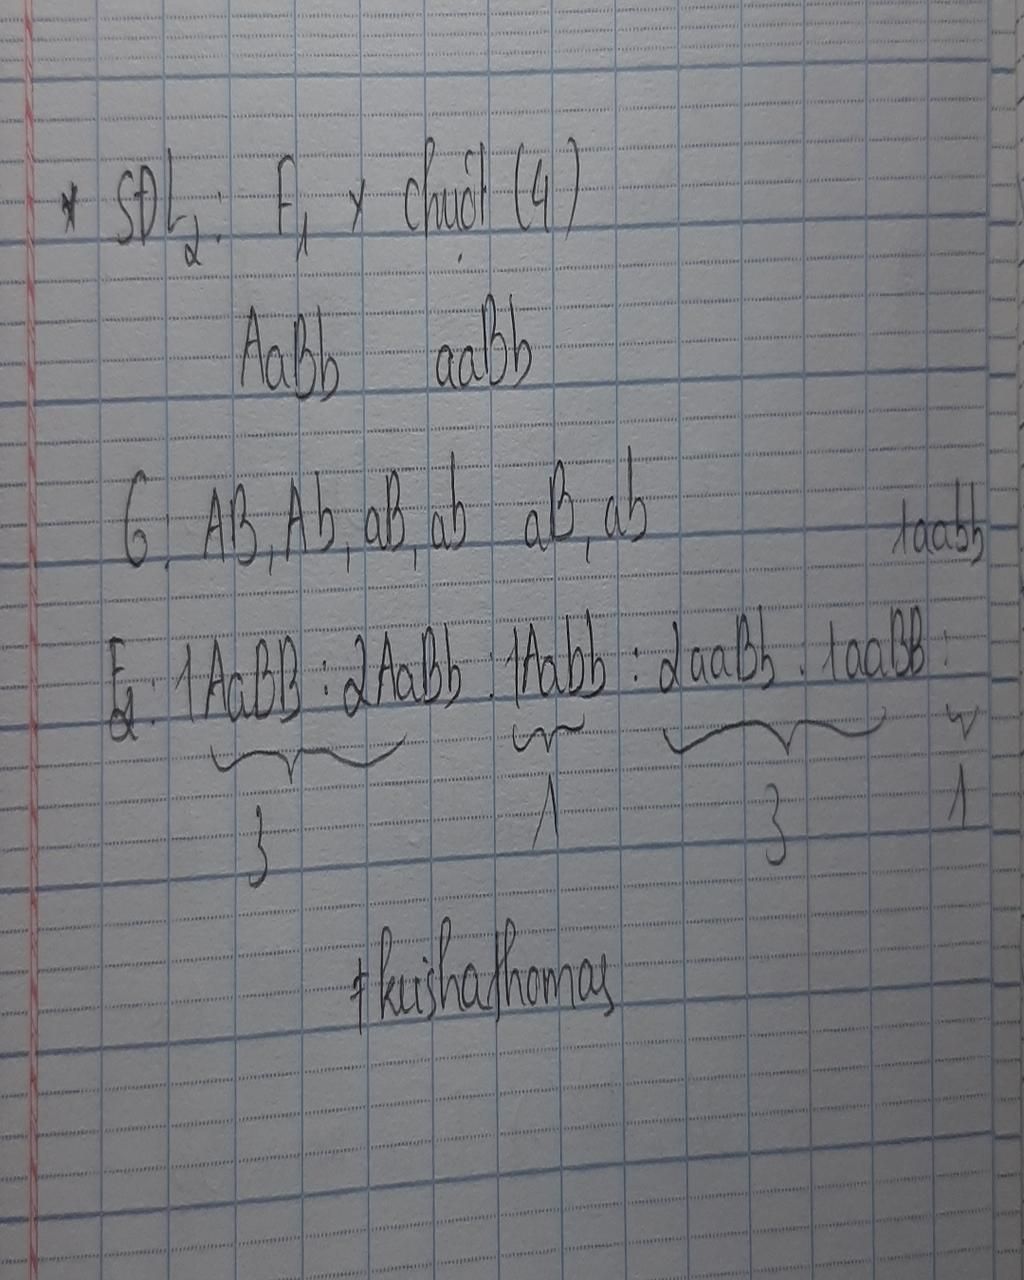 * SĐL2: F1 x chuột (4)
AaBb aaBb
G: AB, Ab, aB, ab aB, ab
1aabb
F2: 1AaBB : 2AaBb : 1Aabb : 2aaBb : 1aaBB :
3 1 3 1